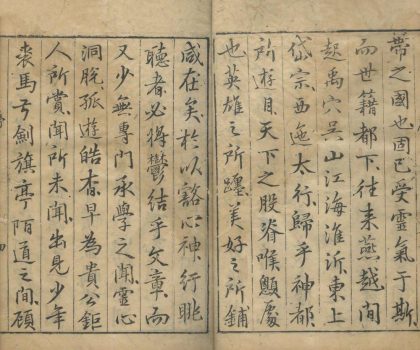 帶之國也固已受靈氣于斯
而世籍都下往来燕越間
起禹穴吳山江海淮沂東上
岱宗西迤太行歸乎神都
所遊目天下之股脊喉顋處
也英雄之所躔美好之所鋪
咸在矣於以豁心神行眺
聽者必將鬱結乎文章而
又少無專門承學之聞靈心
洞脫孤遊皓杳早為貴公鉅
人所賞聞所未聞出見少年
裘馬弓劍旗亭陌道之間顧